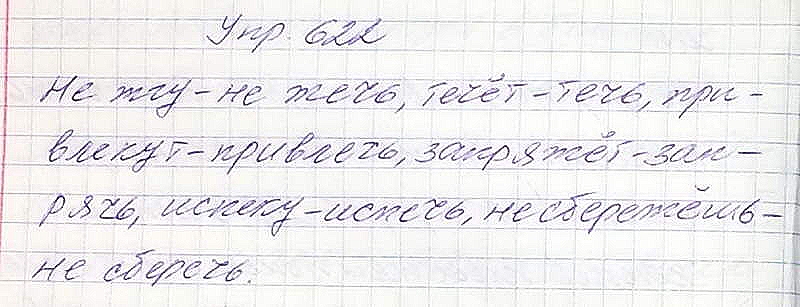 Упр. 622
Не жгу - не жечь, течёт - течь, при-
влекут - привлечь, запряжёт - зап-
рячь, испеку - испечь, не сбережёшь -
не сберечь.